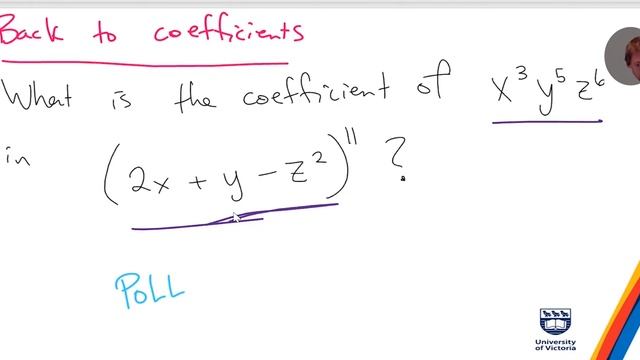 Back to coefficients
What is the coefficient of x³ y⁵ z⁶
in (2x + y - z²)¹¹ ?
POLL
University
of Victoria